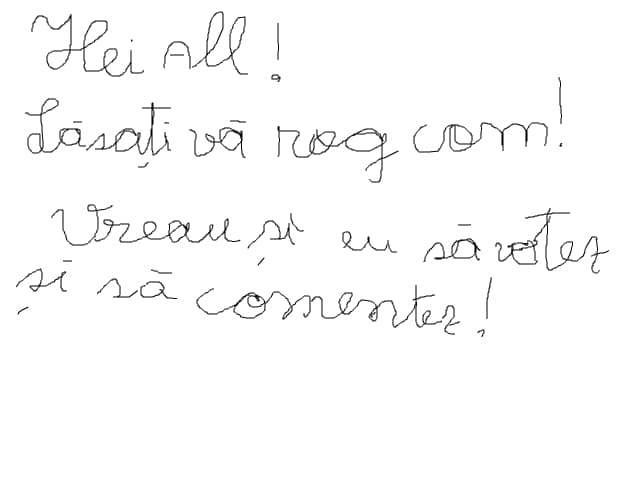 Hei All!
Lăsați vă rog com!
Vreau și eu să votez
și să comentez!